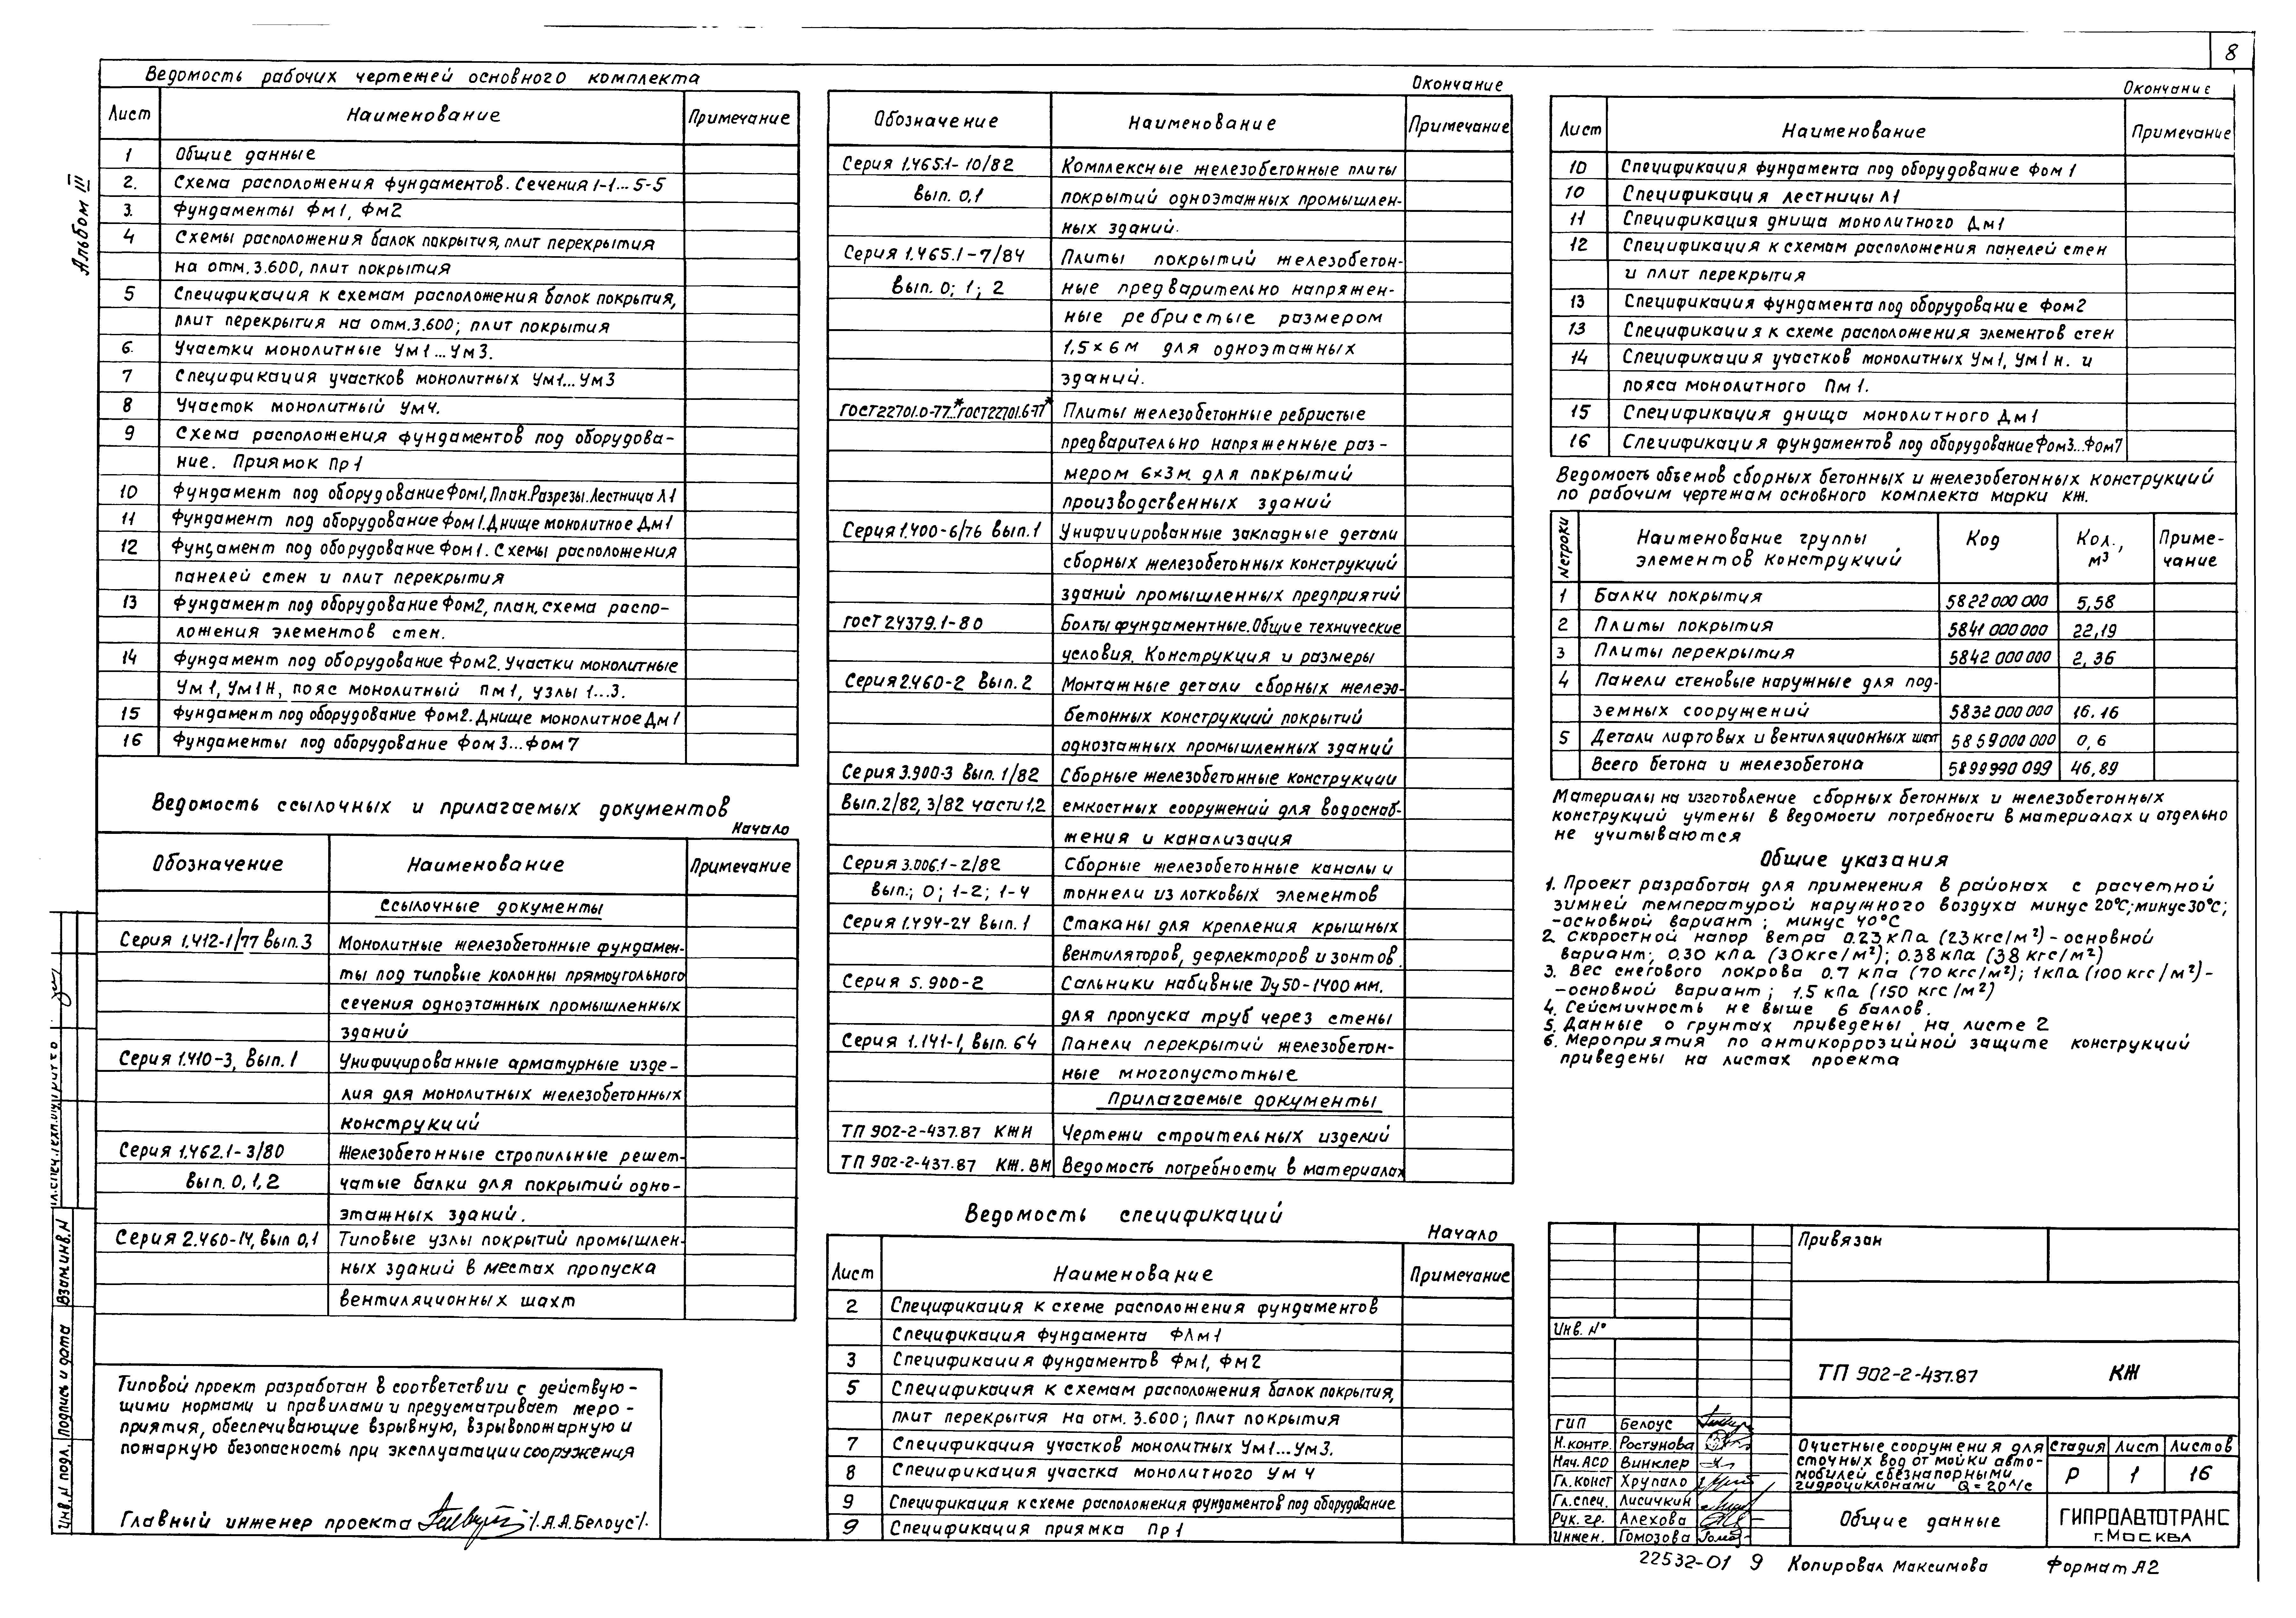 8
Альбом III
Ведомость рабочих чертежей основного комплекта
Лист Наименование Примечание
1 Общие данные
2. Схема расположения фундаментов. Сечения 1-1...5-5
3. Фундаменты Фм1, Фм2
4 Схемы расположения балок покрытия, плит перекрытия
на отм. 3.600, плит покрытия
5 Спецификация к схемам расположения балок покрытия,
плит перекрытия на отм. 3.600; плит покрытия
6. Участки монолитные Ум1...Ум3.
7 Спецификация участков монолитных Ум1...Ум3
8 Участок монолитный Ум4.
9 Схема расположения фундаментов под оборудова-
ние. Приямок Пр1
10 Фундамент под оборудование Фом1, План. Разрезы. Лестница Л1
11 Фундамент под оборудование Фом1. Днище монолитное Дм1
12 Фундамент под оборудование Фом1. Схемы расположения
панелей стен и плит перекрытия
13 Фундамент под оборудование Фом2, план, схема распо-
ложения элементов стен.
14 Фундамент под оборудование Фом2. Участки монолитные
Ум1, Ум1н, пояс монолитный Пм1, узлы 1...3.
15 Фундамент под оборудование Фом2. Днище монолитное Дм1
16 Фундаменты под оборудование Фом3...Фом7
Ведомость ссылочных и прилагаемых документов
Начало
Обозначение Наименование Примечание
Ссылочные документы
Серия 1.412-1/77 вып.3 Монолитные железобетонные фундамен-
ты под типовые колонны прямоугольного
сечения одноэтажных промышленных
зданий
Серия 1.410-3, вып. 1 Унифицированные арматурные изде-
лия для монолитных железобетонных
конструкций
Серия 1.462.1-3/80 Железобетонные стропильные решет-
вып. 0,1,2 чатые балки для покрытий одно-
этажных зданий.
Серия 2.460-14, вып 0,1 Типовые узлы покрытий промышлен-
ных зданий в местах пропуска
вентиляционных шахт
Типовой проект разработан в соответствии с действую-
щими нормами и правилами и предусматривает меро-
приятия, обеспечивающие взрывную, взрывопожарную и
пожарную безопасность при эксплуатации сооружения
Главный инженер проекта /.А.А.Белоус/.
Взам.инв.№
Подпись и дата
Инв.№ подл.
Окончание
Обозначение Наименование Примечание
Серия 1.465.1-10/82 Комплексные железобетонные плиты
вып. 0,1 покрытий одноэтажных промышлен-
ных зданий.
Серия 1.465.1-7/84 Плиты покрытий железобетон-
вып. 0; 1; 2 ные предварительно напряжен-
ные ребристые размером
1,5×6м для одноэтажных
зданий.
ГОСТ22701.0-77*...ГОСТ22701.6-77* Плиты железобетонные ребристые
предварительно напряженные раз-
мером 6×3м. для покрытий
производственных зданий
Серия 1.400-6/76 вып.1 Унифициированные закладные детали
сборных железобетонных конструкций
зданий промышленных предприятий
ГОСТ 24379.1-80 Болты фундаментные. Общие технические
условия. Конструкция и размеры
Серия 2.460-2 вып.2 Монтажные детали сборных железо-
бетонных конструкций покрытий
одноэтажных промышленных зданий
Серия 3.900-3 вып. 1/82 Сборные железобетонные конструкции
вып.2/82, 3/82 части 1,2 емкостных сооружений для водоснаб-
жения и канализация
Серия 3.006.1-2/82 Сборные железобетонные каналы и
вып.; 0; 1-2; 1-4 тоннели из лотковых элементов
Серия 1.494-24 вып. 1 Стаканы для крепления крышных
вентиляторов, дефлекторов и зонтов.
Серия 5.900-2 Сальники набивные Ду50-1400 мм.
для пропуска труб через стены
Серия 1.141-1, вып. 64 Панели перекрытий железобетон-
ные многопустотные
Прилагаемые документы
ТП 902-2-437.87 КЖИ Чертежи строительных изделий
ТП 902-2-437.87 КЖ.ВМ Ведомость потребности в материалах
Ведомость спецификаций
Начало
Лист Наименование Примечание
2 Спецификация к схеме расположения фундаментов
Спецификация фундамента ФЛм1
3 Спецификация фундаментов Фм1, Фм2
5 Спецификация к схемам расположения балок покрытия,
плит перекрытия на отм. 3.600; плит покрытия
7 Спецификация участков монолитных Ум1...Ум3.
8 Спецификация участка монолитного Ум 4
9 Спецификация к схеме расположения фундаментов под оборудование
9 Спецификация приямка Пр1
Окончание
Лист Наименование Примечание
10 Спецификация фундамента под оборудование Фом 1
10 Спецификация лестницы Л1
11 Спецификация днища монолитного Дм1
12 Спецификация к схемам расположения панелей стен
и плит перекрытия
13 Спецификация фундамента под оборудование Фом2
13 Спецификация к схеме расположения элементов стен
14 Спецификация участков монолитных Ум1, Ум1н. и
пояса монолитного Пм1.
15 Спецификация днища монолитного Дм1
16 Спецификация фундаментов под оборудование Фом3...Фом7
Ведомость объемов сборных бетонных и железобетонных конструкций
по рабочим чертежам основного комплекта марки КЖ.
№строки Наименование группы элементов конструкций Код Кол., м³ Приме-чание
1 Балки покрытия 5822 000 000 5,58
2 Плиты покрытия 5841 000 000 22,19
3 Плиты перекрытия 5842 000 000 2,36
4 Панели стеновые наружные для под-
земных сооружений 5832 000 000 16.16
5 Детали лифтовых и вентиляционных шахт 5859 000 000 0,6
Всего бетона и железобетона 5899 990 099 46,89
Материалы на изготовление сборных бетонных и железобетонных
конструкций учтены в ведомости потребности в материалах и отдельно
не учитываются
Общие указания
1. Проект разработан для применения в районах с расчетной
зимней температурой наружного воздуха минус 20°С; минус 30°С;
-основной вариант; минус 40°С
2. Скоростной напор ветра 0.23 кПа (23кгс/м²)-основной
вариант; 0.30 кПа (30кгс/м²); 0.38 кПа (38 кгс/м²)
3. Вес снегового покрова 0.7 кПа (70 кгс/м²); 1кПа (100 кгс/м²)-
-основной вариант; 1.5 кПа (150 кгс/м²)
4. Сейсмичность не выше 6 баллов.
5. Данные о грунтах приведены на листе 2
6. Мероприятия по антикоррозийной защите конструкций
приведены на листах проекта
Привязан
Инв. №
ТП 902-2-437.87 КЖ
ГИП Белоус
Н.контр. Ростунова
Нач.АСО Винклер
Гл.конст Хрупало
Гл.спец. Лисичкин
Рук.гр. Алехова
Инжен. Гомозова
Очистные сооружения для
сточных вод от мойки авто-
мобилей с безнапорными
гидроциклонами Q=20 л/с
Стадия Лист Листов
Р 1 16
Общие данные
ГИПРОАВТОТРАНС
г.Москва
22532-01 9 Копировал Максимова Формат А2